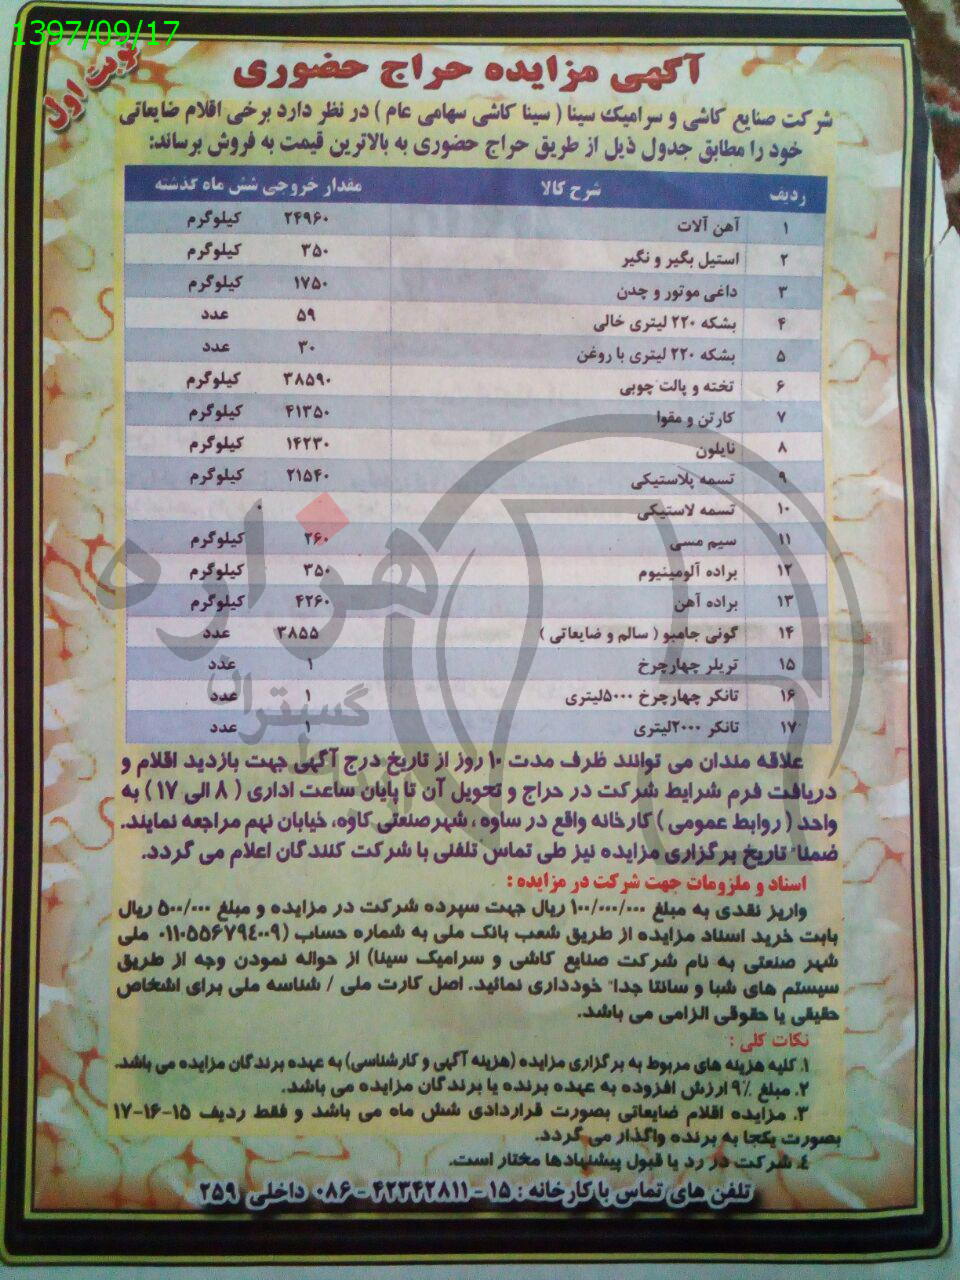 1397/09/17
نوبت اول
آگهی مزایده حراج حضوری
شرکت صنایع کاشی و سرامیک سینا ( سینا کاشی سهامی عام ) در نظر دارد برخی اقلام ضایعاتی
خود را مطابق جدول ذیل از طریق حراج حضوری به بالاترین قیمت به فروش برساند:
ردیف شرح کالا مقدار خروجی شش ماه گذشته
۱ آهن آلات ۲۴۹۶۰ کیلوگرم
۲ استیل بگیر و نگیر ۳۵۰ کیلوگرم
۳ داغی موتور و چدن ۱۷۵۰ کیلوگرم
۴ بشکه ۲۲۰ لیتری خالی ۵۹ عدد
۵ بشکه ۲۲۰ لیتری با روغن ۳۰ عدد
۶ تخته و پالت چوبی ۳۸۵۹۰ کیلوگرم
۷ کارتن و مقوا ۴۱۳۵۰ کیلوگرم
۸ نایلون ۱۴۲۳۰ کیلوگرم
۹ تسمه پلاستیکی ۲۱۵۴۰ کیلوگرم
۱۰ تسمه لاستیکی ۰
۱۱ سیم مسی ۲۶۰ کیلوگرم
۱۲ براده آلومینیوم ۳۵۰ کیلوگرم
۱۳ براده آهن ۴۲۶۰ کیلوگرم
۱۴ گونی جامبو ( سالم و ضایعاتی ) ۳۸۵۵ عدد
۱۵ تریلر چهارچرخ ۱ عدد
۱۶ تانکر چهارچرخ ۵۰۰۰لیتری ۱ عدد
۱۷ تانکر ۲۰۰۰لیتری ۱ عدد
هزاره
گستران
علاقه مندان می توانند ظرف مدت ۱۰ روز از تاریخ درج آگهی جهت بازدید اقلام و
دریافت فرم شرایط شرکت در حراج و تحویل آن تا پایان ساعت اداری ( ۸ الی ۱۷ ) به
واحد ( روابط عمومی ) کارخانه واقع در ساوه ، شهرصنعتی کاوه، خیابان نهم مراجعه نمایند.
ضمنا" تاریخ برگزاری مزایده نیز طی تماس تلفنی با شرکت کنندگان اعلام می گردد.
اسناد و ملزومات جهت شرکت در مزایده :
واریز نقدی به مبلغ ۱۰۰/۰۰۰/۰۰۰ ریال جهت سپرده شرکت در مزایده و مبلغ ۵۰۰/۰۰۰ ریال
بابت خرید اسناد مزایده از طریق شعب بانک ملی به شماره حساب (۰۱۱۰۵۵۶۷۹۴۰۰۹ ملی
شهر صنعتی به نام شرکت صنایع کاشی و سرامیک سینا) از حواله نمودن وجه از طریق
سیستم های شبا و ساتنا جدا" خودداری نمائید. اصل کارت ملی / شناسه ملی برای اشخاص
حقیقی یا حقوقی الزامی می باشد.
نکات کلی :
۱. کلیه هزینه های مربوط به برگزاری مزایده (هزینه آگهی و کارشناسی) به عهده برندگان مزایده می باشد.
۲. مبلغ ۹٪ ارزش افزوده به عهده برنده یا برندگان مزایده می باشد.
۳. مزایده اقلام ضایعاتی بصورت قراردادی شش ماه می باشد و فقط ردیف ۱۵-۱۶-۱۷
بصورت یکجا به برنده واگذار می گردد.
۴. شرکت در رد یا قبول پیشنهادها مختار است.
تلفن های تماس با کارخانه : ۱۵ - ۴۲۳۴۲۸۱۱ - ۰۸۶ داخلی ۲۵۹